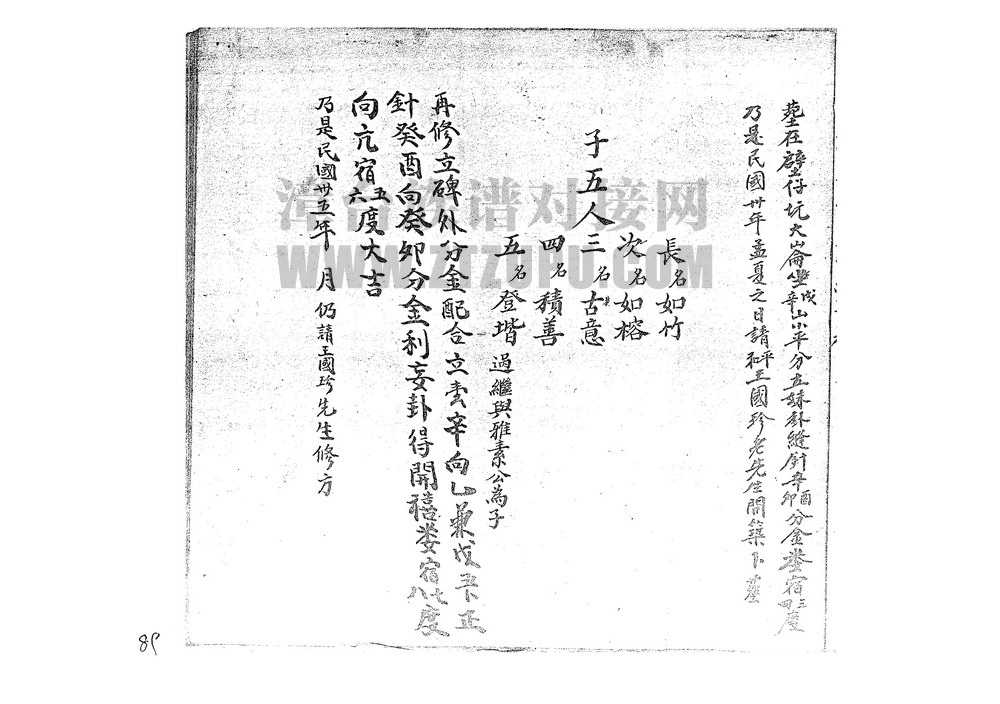 塟在壁仔坑大崙坐辛戌山小平分立妹卦縫針辛酉卯分金娄宿三四度
乃是民國卅年孟夏之日請平和王國珍老先生開築卜塟
子五人
長名如竹
次名如榕
三名古意
四名積善
五名登堦過繼與雅素公為子
再修立碑外分金配合立壹辛向乙兼戌正
針癸酉向癸卯分金利妄卦得開禧娄宿七八度
向亢宿五六度大吉
乃是民國卅五年 月仍請王國珍先生修方
漳台族谱对接网
WWW.ZTZUPU.COM
89